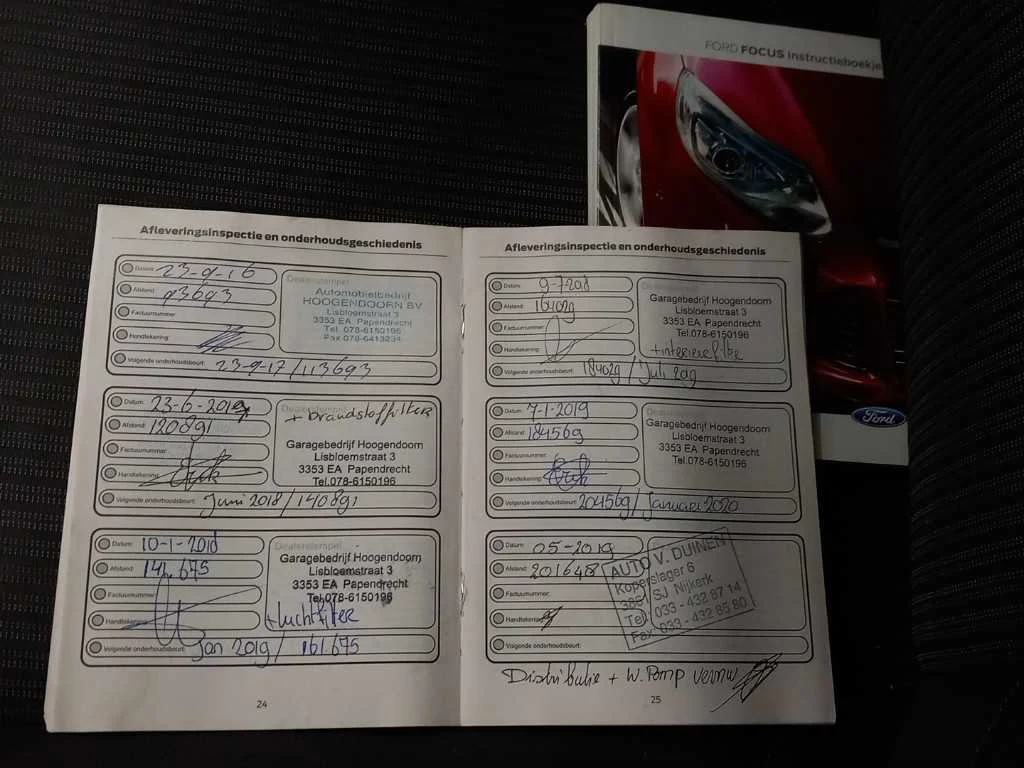 FORD FOCUS instructieboekje
Ford
Afleveringsinspectie en onderhoudsgeschiedenis
Datum: 23-9-16
Afstand: 93693
Factuurnummer:
Handtekening:
Volgende onderhoudsbeurt: 23-9-17 / 113693
Dealerstempel
Automobielbedrijf
HOOGENDOORN BV
Lisbloemstraat 3
3353 EA Papendrecht
Tel. 078-6150196
Fax 078-6413234
Datum: 23-6-2017
Afstand: 120891
Factuurnummer:
Handtekening:
Volgende onderhoudsbeurt: Juni 2018 / 140891
Dealerstempel
+ brandstoffilter
Garagebedrijf Hoogendoorn
Lisbloemstraat 3
3353 EA Papendrecht
Tel.078-6150196
Datum: 10-1-2018
Afstand: 141.675
Factuurnummer:
Handtekening:
Volgende onderhoudsbeurt: Jan 2019 / 161.675
Dealerstempel
Garagebedrijf Hoogendoorn
Lisbloemstraat 3
3353 EA Papendrecht
Tel.078-6150196
+ luchtfilter
24
Afleveringsinspectie en onderhoudsgeschiedenis
Datum: 9-7-2018
Afstand: 164029
Factuurnummer:
Handtekening:
Volgende onderhoudsbeurt: 184029 / Juli 2019
Garagebedrijf Hoogendoorn
Lisbloemstraat 3
3353 EA Papendrecht
Tel.078-6150196
+interieurfilter
Datum: 7-1-2019
Afstand: 184569
Factuurnummer:
Handtekening:
Volgende onderhoudsbeurt: 204569 / Januari 2020
Garagebedrijf Hoogendoorn
Lisbloemstraat 3
3353 EA Papendrecht
Tel.078-6150196
Datum: 05-2019
Afstand: 201648
Factuurnummer:
Handtekening:
Volgende onderhoudsbeurt:
AUTO V. DUINEN
Koperslager 6
SJ Nijkerk
Tel. 033 - 432 87 14
Fax 033 - 432 85 80
Distributie + W. Pomp vernw
25